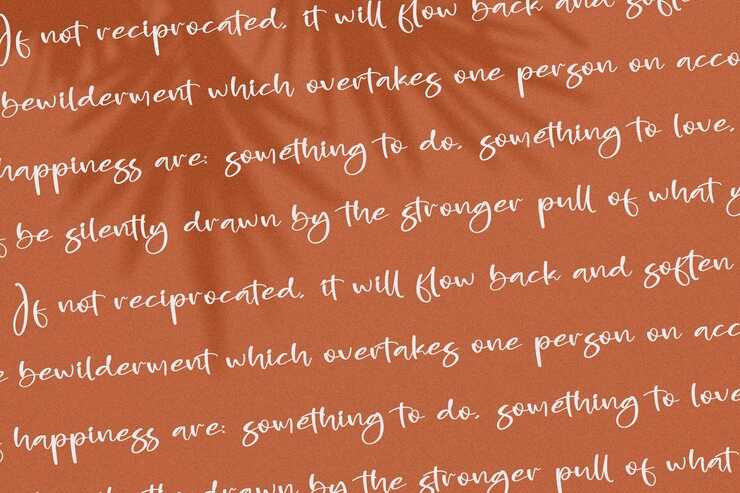 If not reciprocated, it will flow back and
bewilderment which overtakes one person on
happiness are: something to do, something to love,
be silently drawn by the stronger pull of what
If not reciprocated, it will flow back and soften
bewilderment which overtakes one person on
happiness are: something to do, something to love
drawn by the stronger pull of what